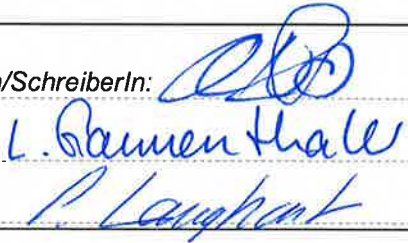 /SchreiberIn:
L. Gaumenthaler
P. Langhart